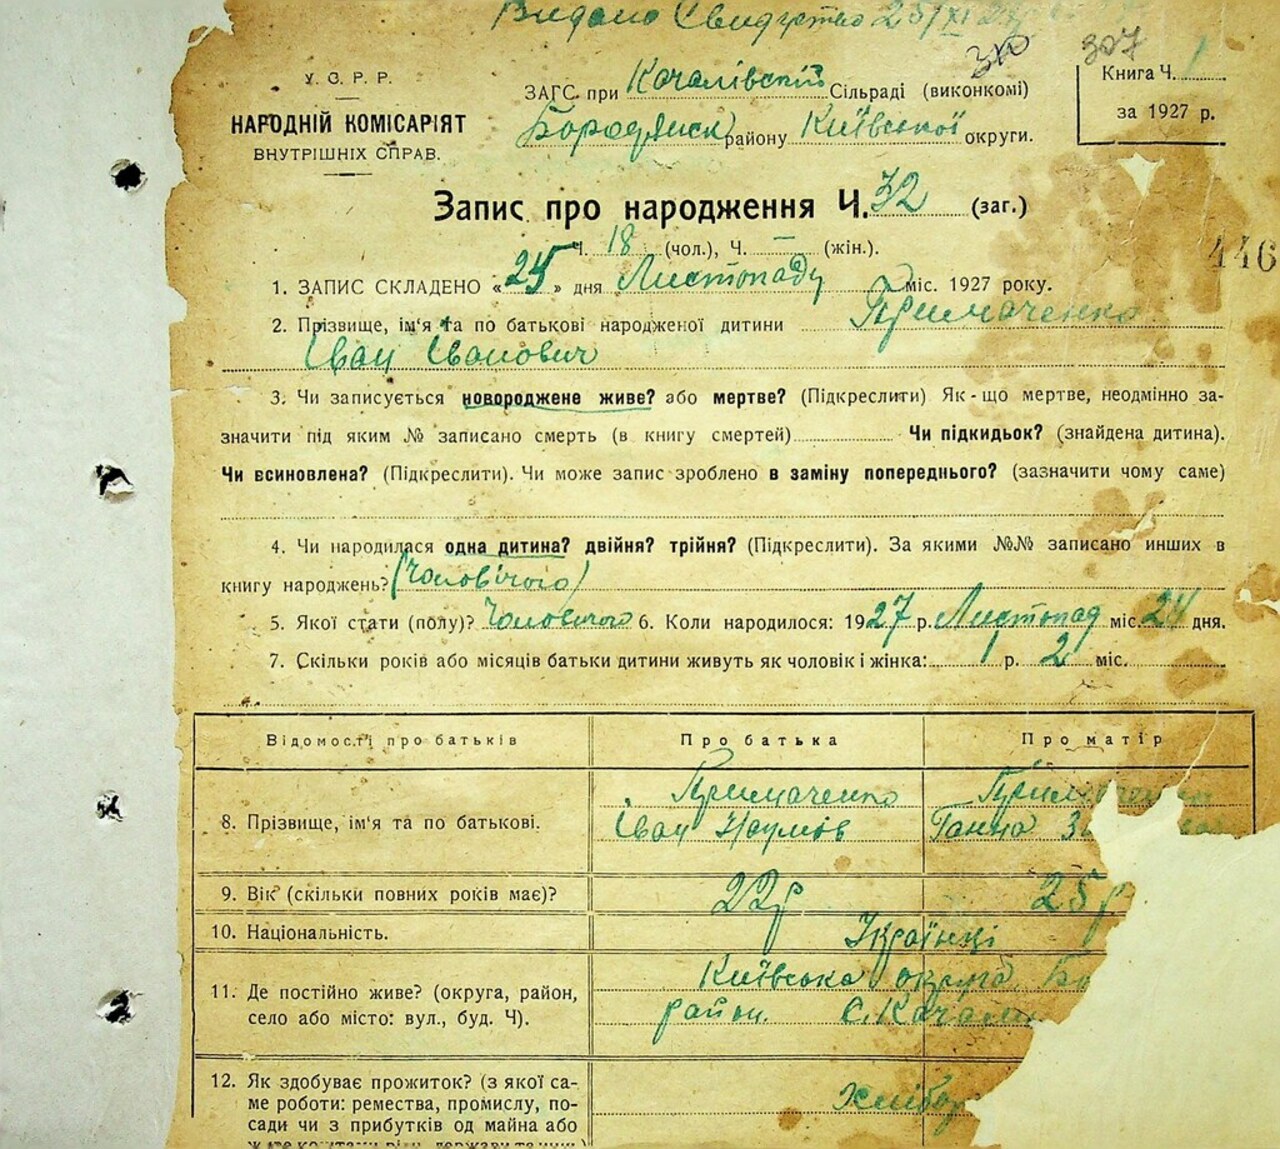 Видано Свидуство 25/XI 27
310 307
У. С. Р. Р.
НАРОДНІЙ КОМІСАРІЯТ
ВНУТРІШНІХ СПРАВ.
ЗАГС. при Качалівській Сільраді (виконкомі)
Бородянск району Київської округи.
Книга Ч. 1
за 1927 р.
Запис про народження Ч. 32 (заг.)
Ч. 18 (чол.), Ч. — (жін.).
446
1. ЗАПИС СКЛАДЕНО «25» дня Листопаду міс. 1927 року.
2. Прізвище, ім'я та по батькові народженої дитини Примаченко
Іван Іванович
3. Чи записується новороджене живе? або мертве? (Підкреслити) Як-що мертве, неодмінно за-
значити під яким № записано смерть (в книгу смертей) Чи підкидьок? (знайдена дитина).
Чи всиновлена? (Підкреслити). Чи може запис зроблено в заміну попереднього? (зазначити чому саме)
4. Чи народилася одна дитина? двійня? трійня? (Підкреслити). За якими №№ записано инших в
книгу народжень? (Чоловічого)
5. Якої стати (полу)? Чоловічого 6. Коли народилося: 1927 р. Листопад міс. 24 дня.
7. Скільки років або місяців батьки дитини живуть як чоловік і жінка: 1 р. 2 міс.
Відомості про батьків Про батька Про матір
8. Прізвище, ім'я та по батькові.
Примаченко
Іван Наумов
Примаченко
Ганна
9. Вік (скільки повних років має)? 22 р 25 р
10. Національність. Українці
11. Де постійно живе? (округа, район,
село або місто: вул., буд. Ч).
Київська округа Бо
район. С. Качал
12. Як здобуває прожиток? (з якої са-
ме роботи: ремества, промислу, по-
сади чи з прибутків од майна або
Хлібор